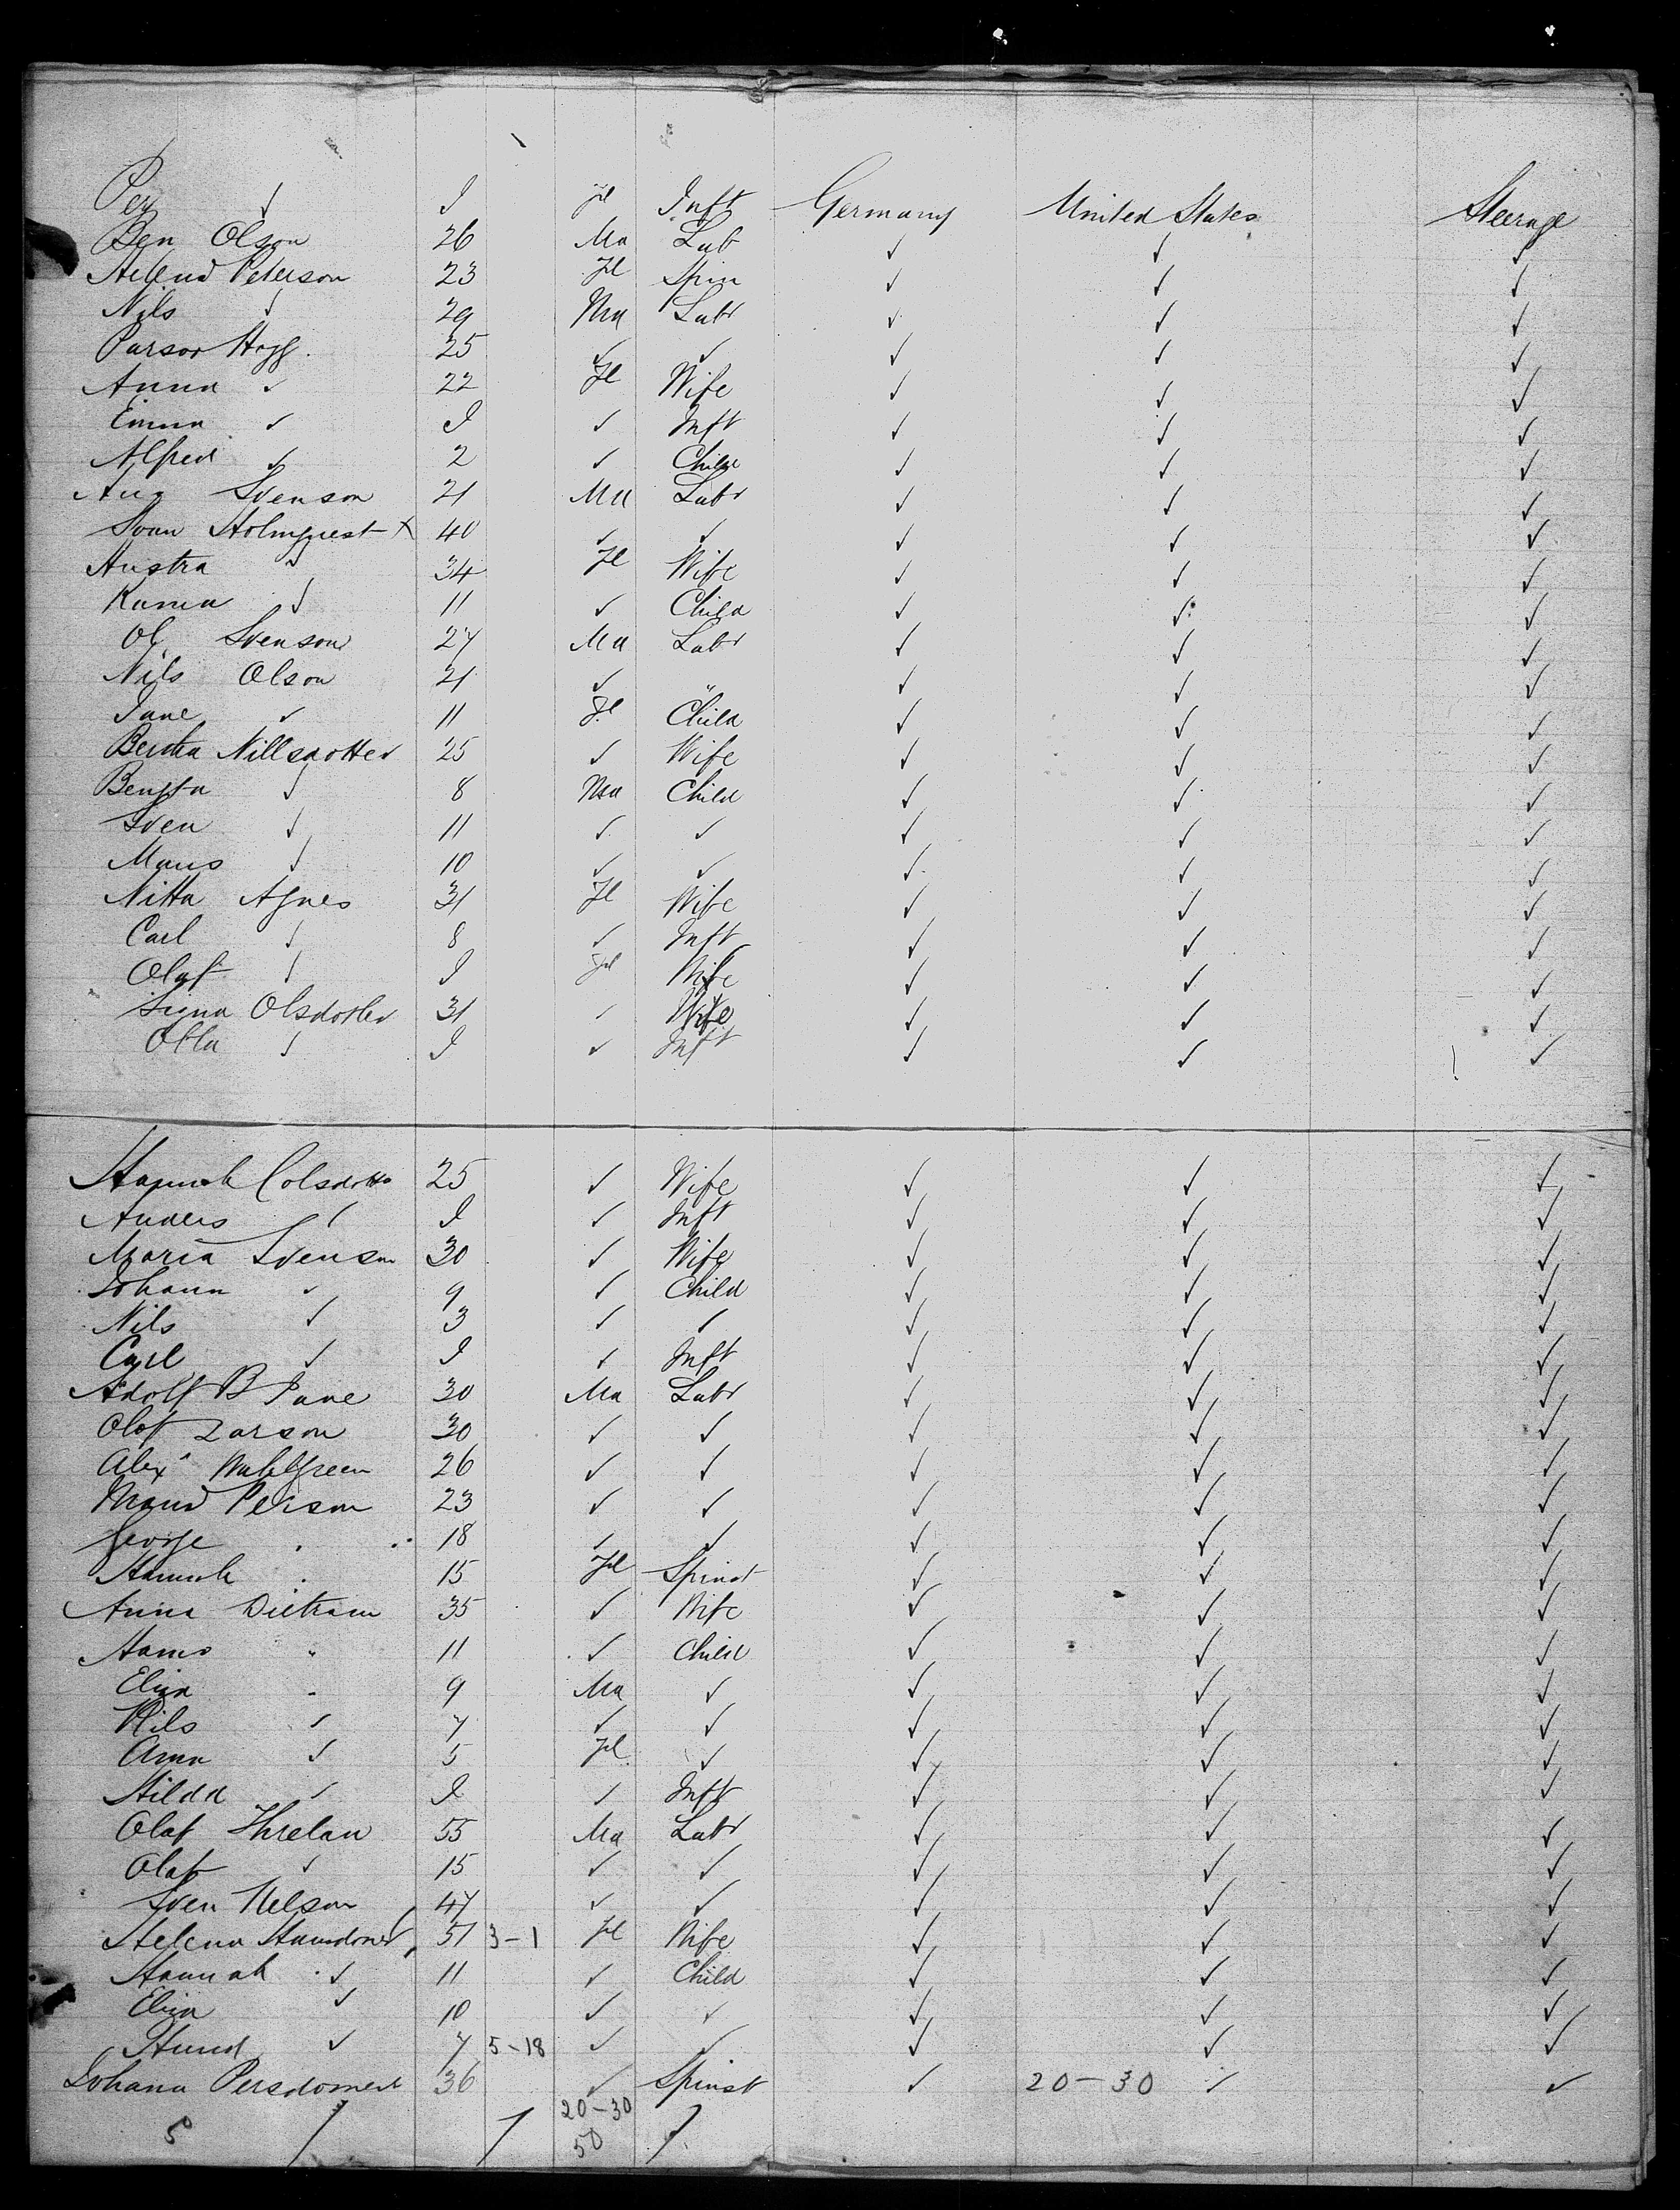 Per ✓ I Fl Inft Germany United States Steerage
Ben Olson 26 Ma Lab ✓ ✓ ✓
Peterson 23 Fl Spin ✓ ✓ ✓
Nils ✓ 29 Ma Labr ✓ ✓ ✓
Parson Hogg. 25 ✓ ✓ ✓ ✓ ✓
Anna ✓ 22 Fl Wife ✓ ✓ ✓
Emma ✓ I ✓ Inft ✓ ✓ ✓
Alfred ✓ 2 ✓ Child ✓ ✓ ✓
Aug Svenson 21 Ma Labr ✓ ✓ ✓
Sven Holmquest X 40 ✓ ✓ ✓ ✓ ✓
Austra " 34 Fl Wife ✓ ✓ ✓
Karna ✓ 11 ✓ Child ✓ ✓ ✓
Ol Svenson 27 Ma Labr ✓ ✓ ✓
Nils Olson 21 ✓ " ✓ ✓ ✓
Jane ✓ 11 Fl Child ✓ ✓ ✓
Bertha Nillsdotter 25 ✓ Wife ✓ ✓ ✓
Bengta ✓ 8 Ma Child ✓ ✓ ✓
Sven ✓ 11 ✓ ✓ ✓ ✓ ✓
Mans ✓ 10 ✓ ✓ ✓ ✓ ✓
Nitta Agnes 31 Fl Wife ✓ ✓ ✓
Carl ✓ 8 ✓ Inft ✓ ✓ ✓
Olaf ✓ I Fl Wife ✓ ✓ ✓
Signa Olsdotter 31 ✓ Wife ✓ ✓ ✓
Olla ✓ I ✓ Inft ✓ ✓ ✓
Hannah Colsdotto 25 ✓ Wife ✓ ✓ ✓
Anders ✓ I ✓ Inft ✓ ✓ ✓
Maria Svenson 30 ✓ Wife ✓ ✓ ✓
Johann ✓ 9 ✓ Child ✓ ✓ ✓
Nils ✓ 3 ✓ ✓ ✓ ✓ ✓
Carl ✓ I ✓ Inft ✓ ✓ ✓
Adolf B Jane 30 Ma Labr ✓ ✓ ✓
Olof Larson 30 ✓ ✓ ✓ ✓ ✓
Alex Wahlgreen 26 ✓ ✓ ✓ ✓ ✓
Person 23 ✓ ✓ ✓ ✓ ✓
George . 18 ✓ ✓ ✓ ✓ ✓
Hannah . 15 Fl Spinst ✓ ✓ ✓
Anna Dietram 35 ✓ Wife ✓ ✓ ✓
Hans " 11 ✓ Child ✓ ✓ ✓
Eliza " 9 Ma ✓ ✓ ✓ ✓
Nils ✓ 7 ✓ ✓ ✓ ✓ ✓
Anna ✓ 5 Fl ✓ ✓ ✓ ✓
Hilda ✓ I ✓ Inft ✓ ✓ ✓
Olaf Threlan 55 Ma Labr ✓ ✓ ✓
Olaf ✓ 15 ✓ ✓ ✓ ✓ ✓
Sven Nelson 47 ✓ ✓ ✓ ✓ ✓
Helena 51 3-1 Fl Wife ✓ ✓ ✓
Hannah ✓ 11 ✓ Child ✓ ✓ ✓
Eliza ✓ 10 ✓ ✓ ✓ ✓ ✓
✓ 7 5-18 ✓ ✓ ✓ ✓ ✓
Johana 36 ✓ Spinst ✓ 20-30 ✓ ✓
20-30
5 50